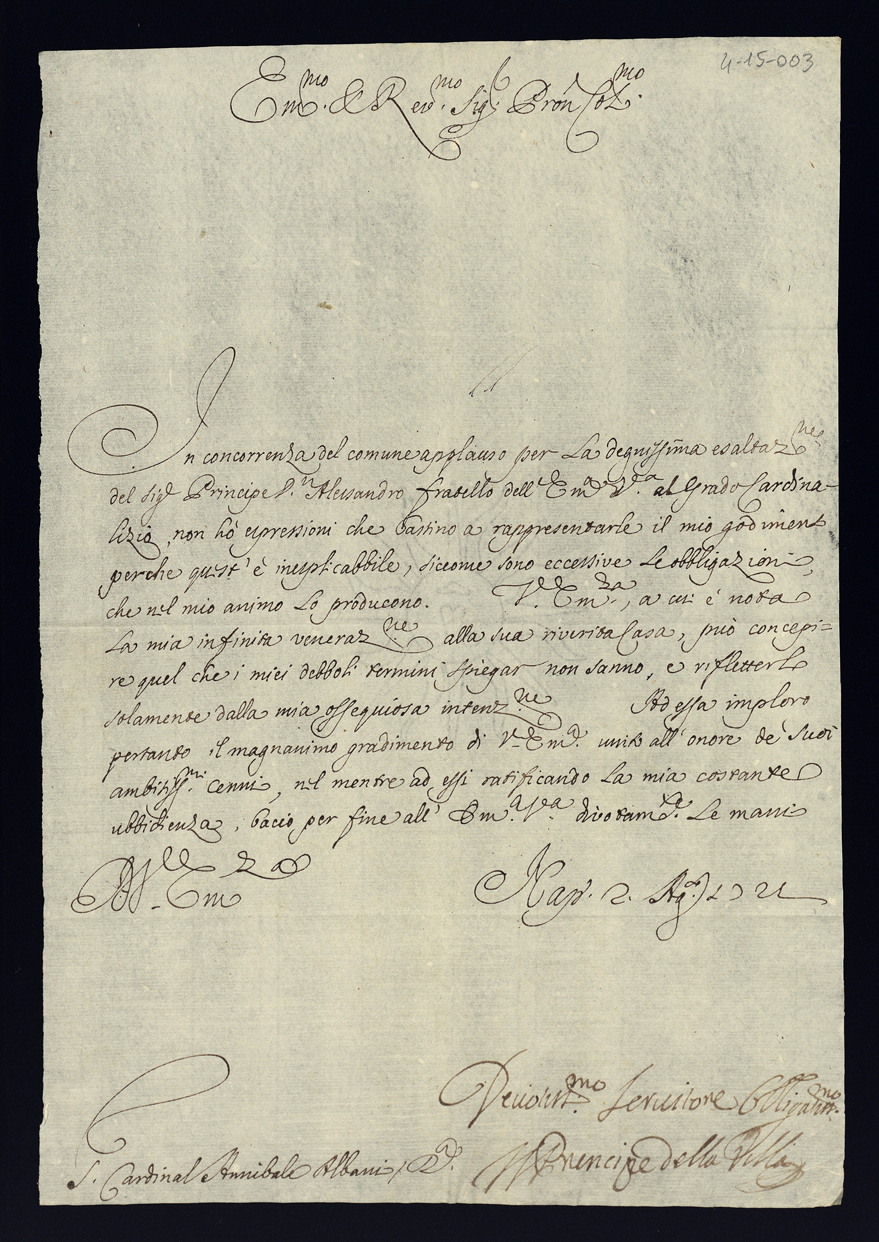 4-15-003
Em.mo & Rev.mo Sig.r Pron Col.mo
In concorrenza del comune applauso per La degnissima esaltaz.ne
del Sig.r Principe D. Alessandro fratello dell' Em.a V.a al Grado Cardina-
lizio, non hò espressioni che bastino a rappresentarle il mio godiment
perche quest' è inesplicabbile, siccome sono eccessive Le obbligazioni,
che nel mio animo Lo producono. V. Em.za, a cui è nota
La mia infinita veneraz.ne alla sua riverita Casa, può concepi=
re quel che i miei debboli termini spiegar non sanno, e rifletterlo
solamente dalla mia ossequiosa intenz.ne Ad essa imploro
pertanto il magnanimo gradimento di V. Em.a unito all' onore de' Suoi
ambitiss.mi Cenni, nel mentre ad essi ratificando La mia costante
ubbidienza, bacio per fine all' Em.a V.a divotam.te Le mani
Di V. Em.za
Nap. 2. Ag.o 1721
Devotis.mo Servitore Obligatis.mo
S. Cardinal Annibale Albani
Il Prencipe della Villa